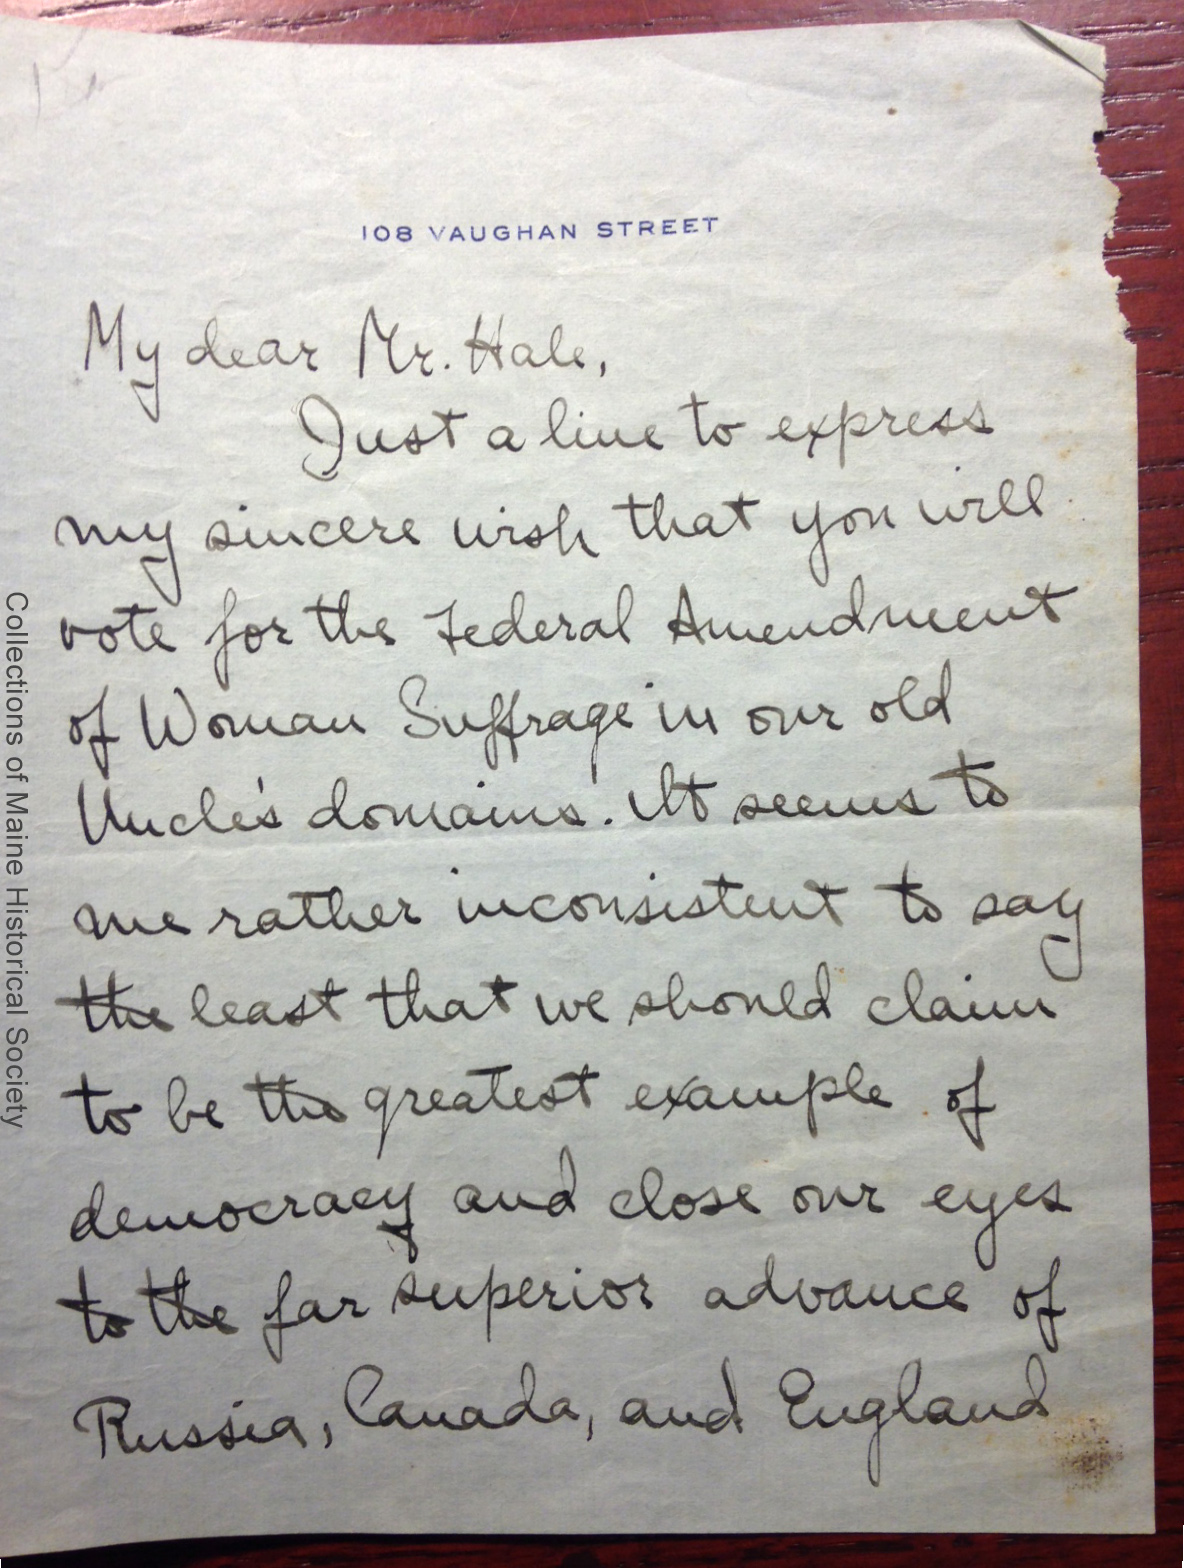 108 VAUGHAN STREET
My dear Mr. Hale,
Just a line to express
my sincere wish that you will
vote for the Federal Amendment
of Woman Suffrage in our old
Uncle's domains. It seems to
me rather inconsistent to say
the least that we should claim
to be the greatest example of
democracy and close our eyes
to the far superior advance of
Russia, Canada, and England
Collections of Maine Historical Society